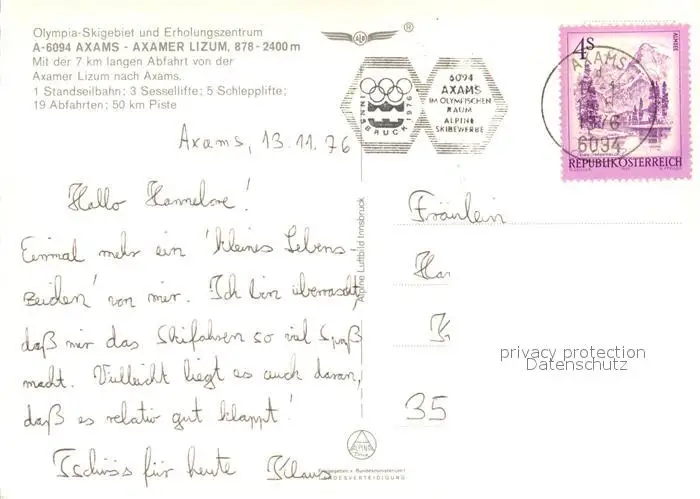 Olympia-Skigebiet und Erholungszentrum
A-6094 AXAMS - AXAMER LIZUM, 878 - 2400 m
Mit der 7 km langen Abfahrt von der
Axamer Lizum nach Axams.
1 Standseilbahn; 3 Sessellifte; 5 Schlepplifte;
19 Abfahrten; 50 km Piste
®
INNSBRUCK 1976
6094
AXAMS
IM OLYMPISCHEN
RAUM
ALPINE
SKIBEWERBE
AXAMS
6094
4S
REPUBLIK ÖSTERREICH
Axams, 13.11.76
Hallo Hannelore!
Einmal mehr ein 'kleines Lebens-
zeichen' von mir. Ich bin überrascht,
daß mir das Skifahren so viel Spaß
macht. Vielleicht liegt es auch daran,
daß es relativ gut klappt!
Tschüss für heute Klaus
Alpine Luftbild Innsbruck
Fräulein
Ha
K
35
privacy protection
Datenschutz
ALPINE
LANDESVERTEIDIGUNG